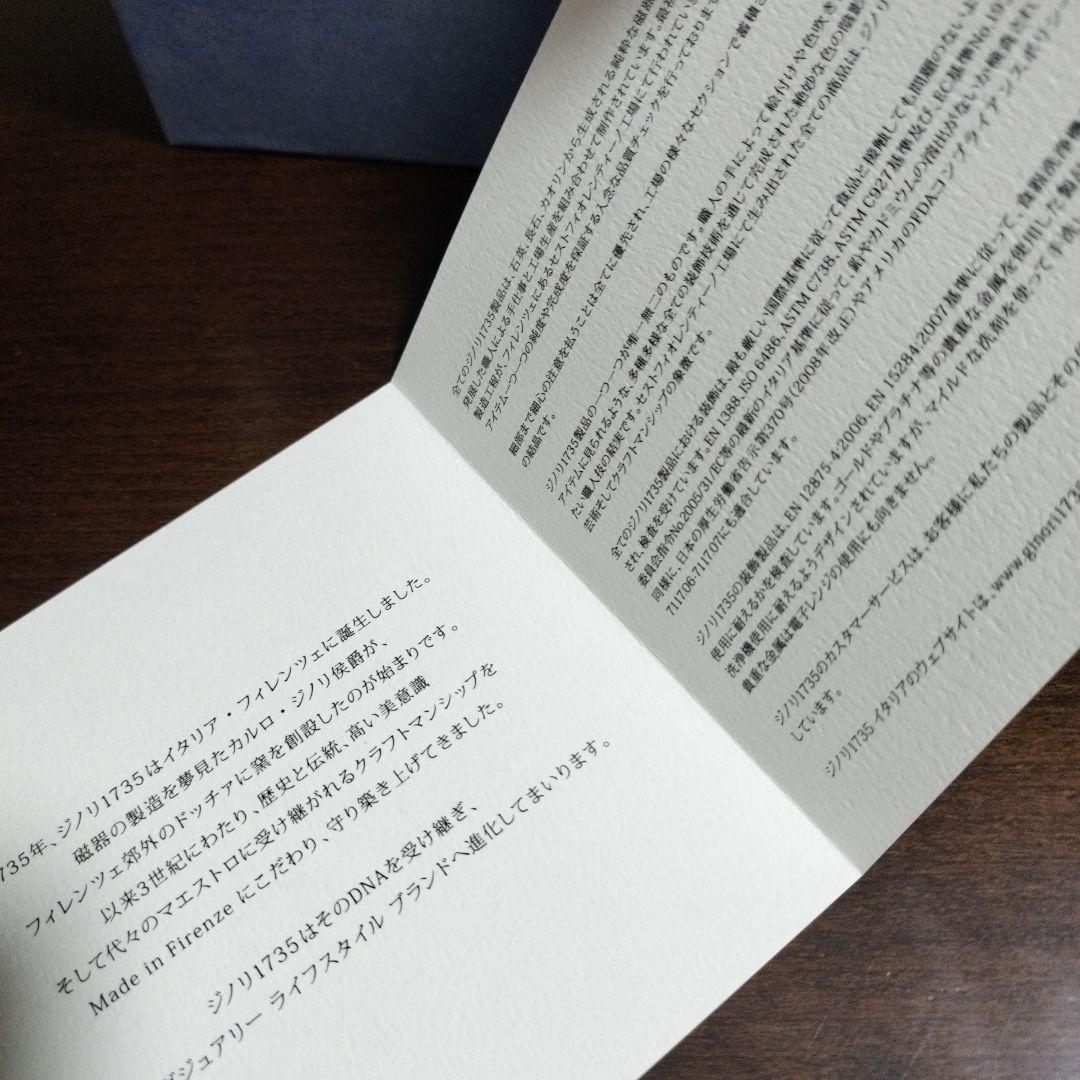 735年、ジノリ1735はイタリア・フィレンツェに誕生しました。
磁器の製造を夢見たカルロ・ジノリ侯爵が、
フィレンツェ郊外のドッチァに窯を創設したのが始まりです。
以来3世紀にわたり、歴史と伝統、高い美意識
そして代々のマエストロに受け継がれるクラフトマンシップを
Made in Firenze にこだわり、守り築き上げてきました。
ジノリ1735はそのDNAを受け継ぎ、
ジュアリー ライフスタイル ブランドへ進化してまいります。
全てのジノリ1735製品は、石英、長石、カオリンから生成される純粋な磁器
発展した職人による手仕事と工場生産を組み合わせて制作されています。
製造工程が、フィレンツェにあるセストフィオレンティーノ工場にて行われてい
アイテム一つ一つの純度や完成度を保証する入念な品質チェックを行っております
細部まで細心の注意を払うことは全てに優先され、工場の様々なセクションで蓄積さ
の結晶です。
ジノリ1735製品の一つ一つが唯一無二のものです。職人の手によって絵付けや色吹き
アイテムに見られるような、多種多様な全ての装飾技術を通じて完成された絶妙な色の陰影
たい職人技の結実です。セストフィオレンティーノ工場にて生み出された全ての商品は、ジノリ
芸術そしてクラフトマンシップの象徴です。
全てのジノリ1735製品における装飾は、最も厳しい国際基準に従って食品と接触しても問題のないよ
され、検査を受けています。EN 1388、ISO 6486、ASTM C738、ASTM C927基準及び、EC基準No.19
委員会指令No.2005/31/EC等の最新のイタリア基準に従って、鉛やカドミウムの溶出がないか検査され
同様に、日本の厚生労働省告示第370号(2008年改正)やアメリカのFDAコンプライアンスポリシー
7117.06-7117.07にも適合しています。
ジノリ1735の装飾製品は、EN 12875-4:2006、EN 15284:2007基準に従って、食器洗浄機
使用に耐えるかを検査しています。ゴールドやプラチナ等の貴重な金属を使用した製品
洗浄機使用に耐えるようデザインされていますが、マイルドな洗剤を使って手洗
貴重な金属は電子レンジの使用にも向きません。
ジノリ1735のカスタマーサービスは、お客様に私たちの製品とその
しています。
ジノリ1735 イタリアのウェブサイトは、www.ginori173